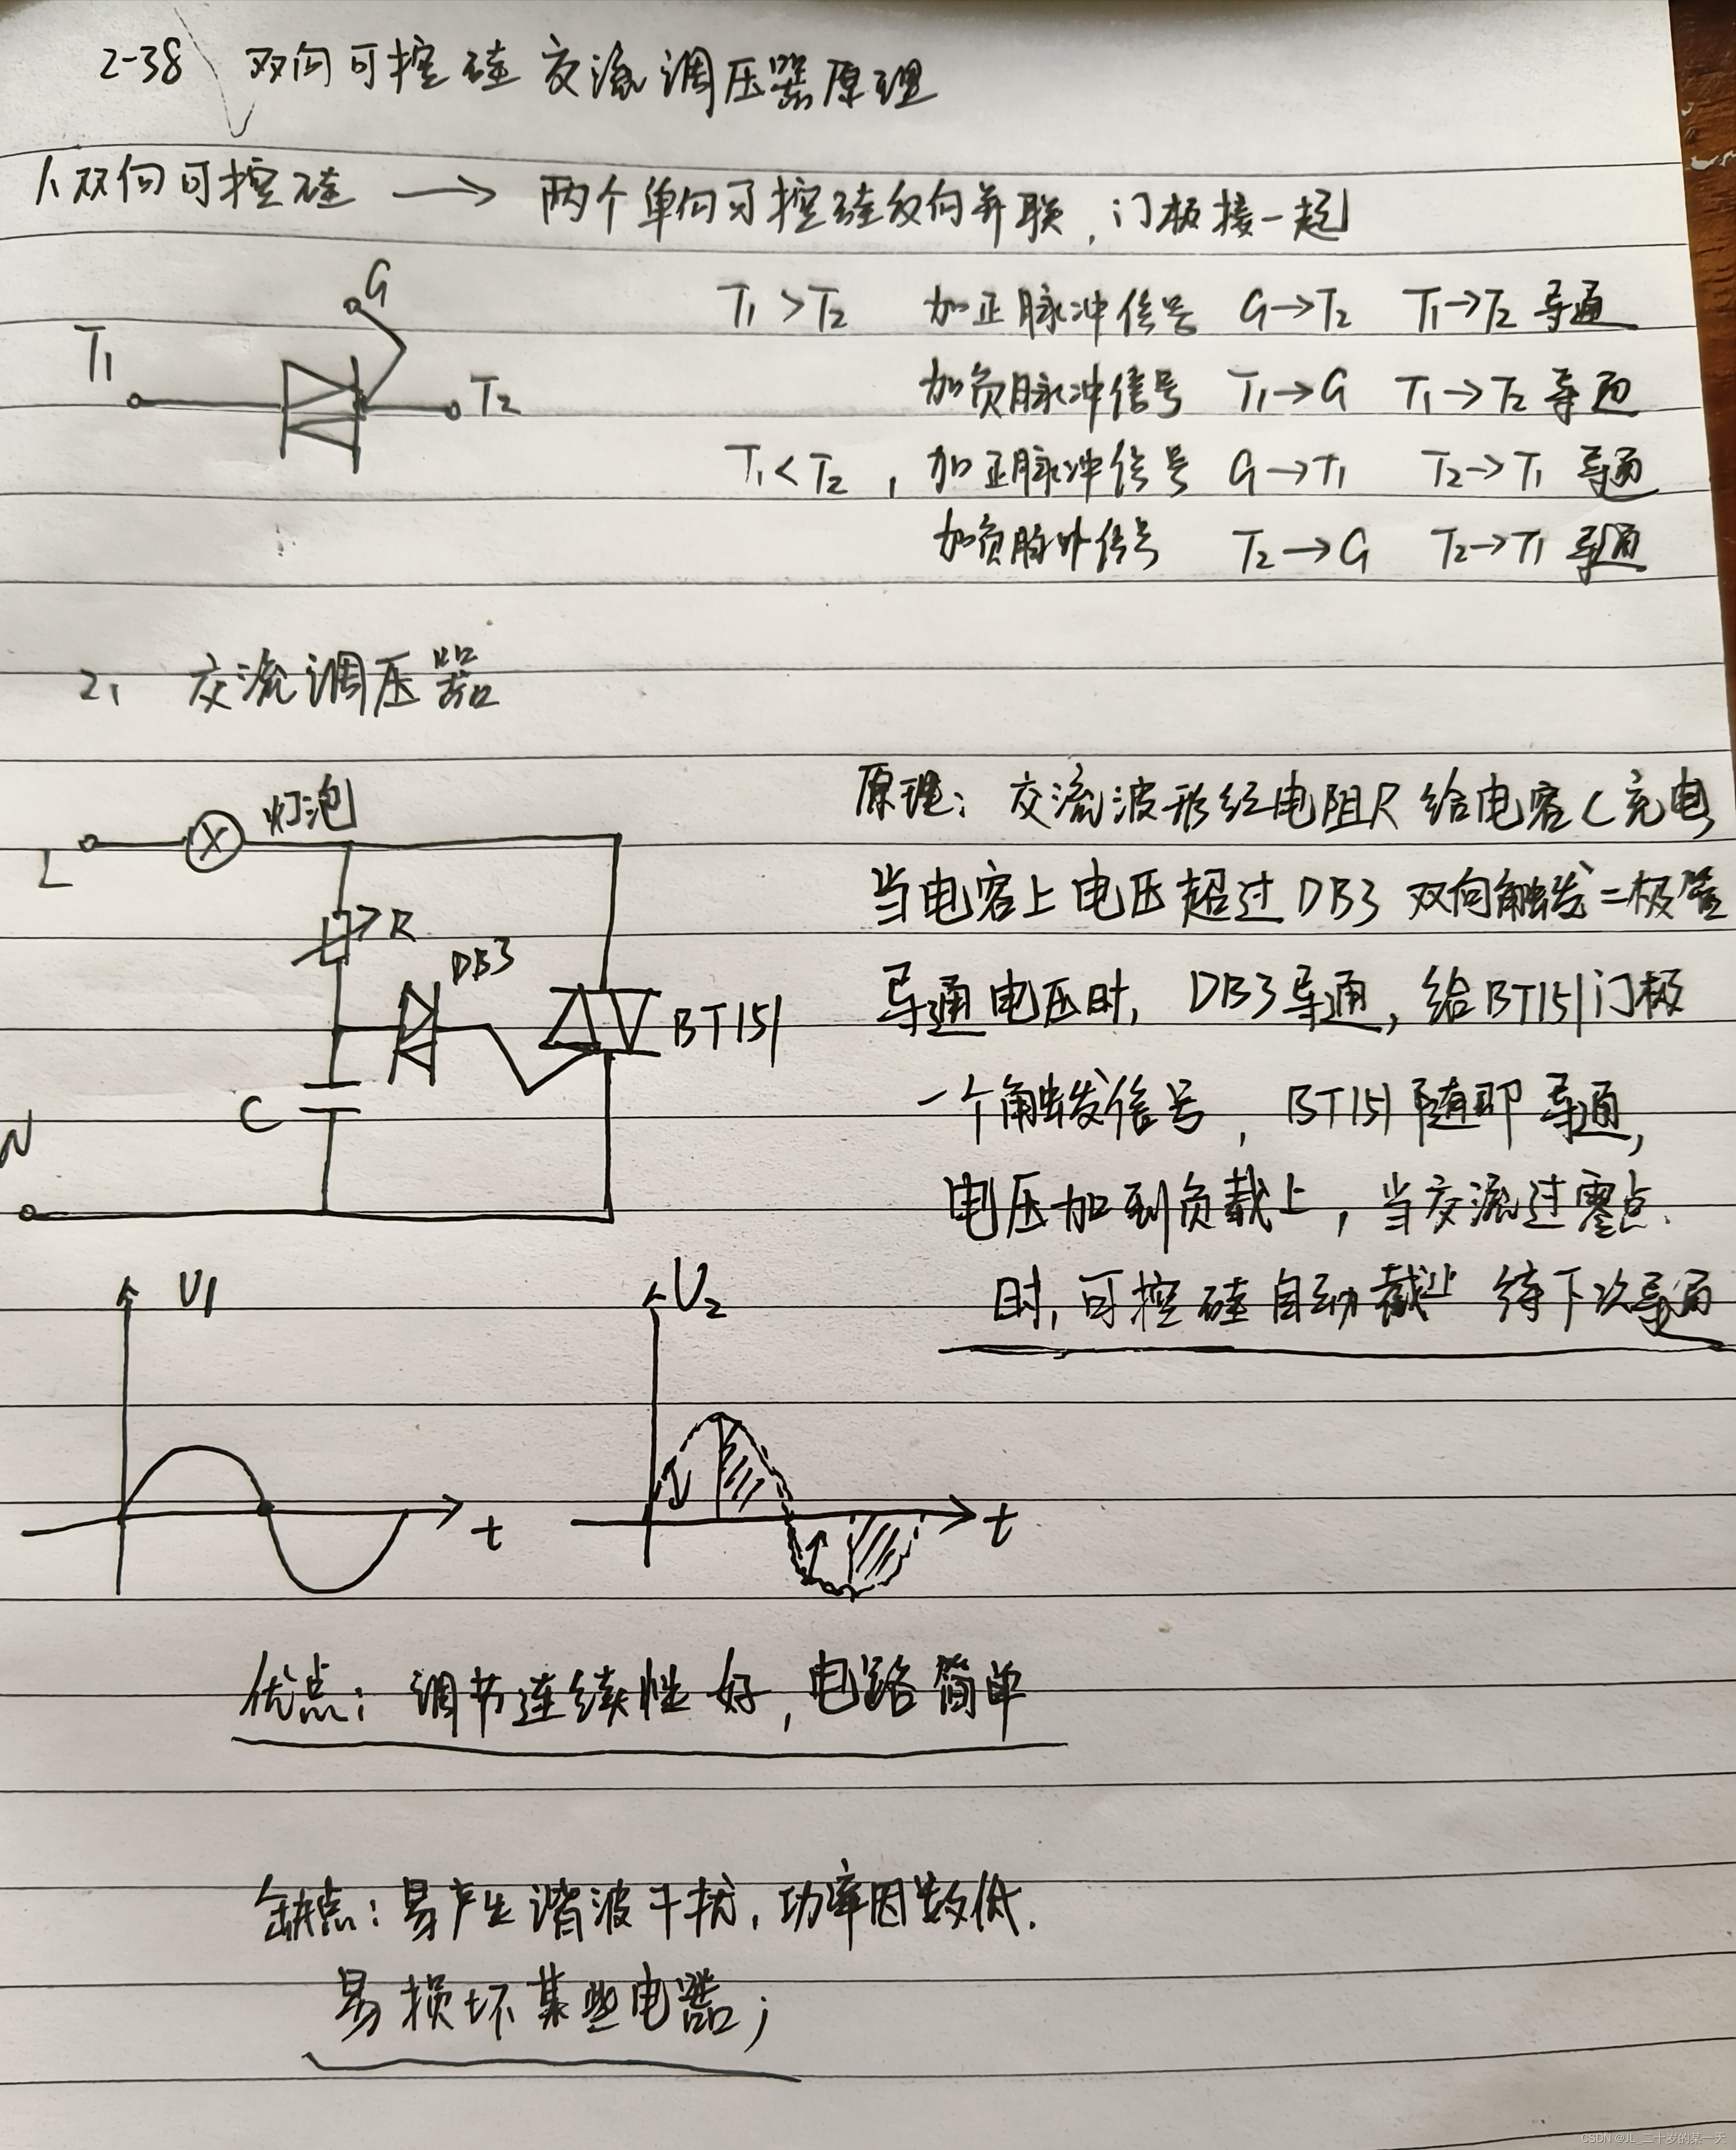 2-38 双向可控硅交流调压器原理
1、双向可控硅 → 两个单向可控硅反向并联，门极接一起
G
T1
T2
T1>T2 加正脉冲信号 G→T2 T1→T2 导通
加负脉冲信号 T1→G T1→T2 导通
T1<T2，加正脉冲信号 G→T1 T2→T1 导通
加负脉冲信号 T2→G T2→T1 导通
2、交流调压器
灯泡
L
R
DB3
BT151
C
N
原理：交流波形经电阻R给电容C充电
当电容上电压超过DB3双向触发二极管
导通电压时，DB3导通，给BT151门极
一个触发信号，BT151随即导通，
电压加到负载上，当交流过零点
时，可控硅自动截止 待下次导通
U1
t
U2
t
优点：调节连续性好，电路简单
缺点：易产生谐波干扰，功率因数低．
易损坏某些电器；
CSDN @JL_二十岁的某一天